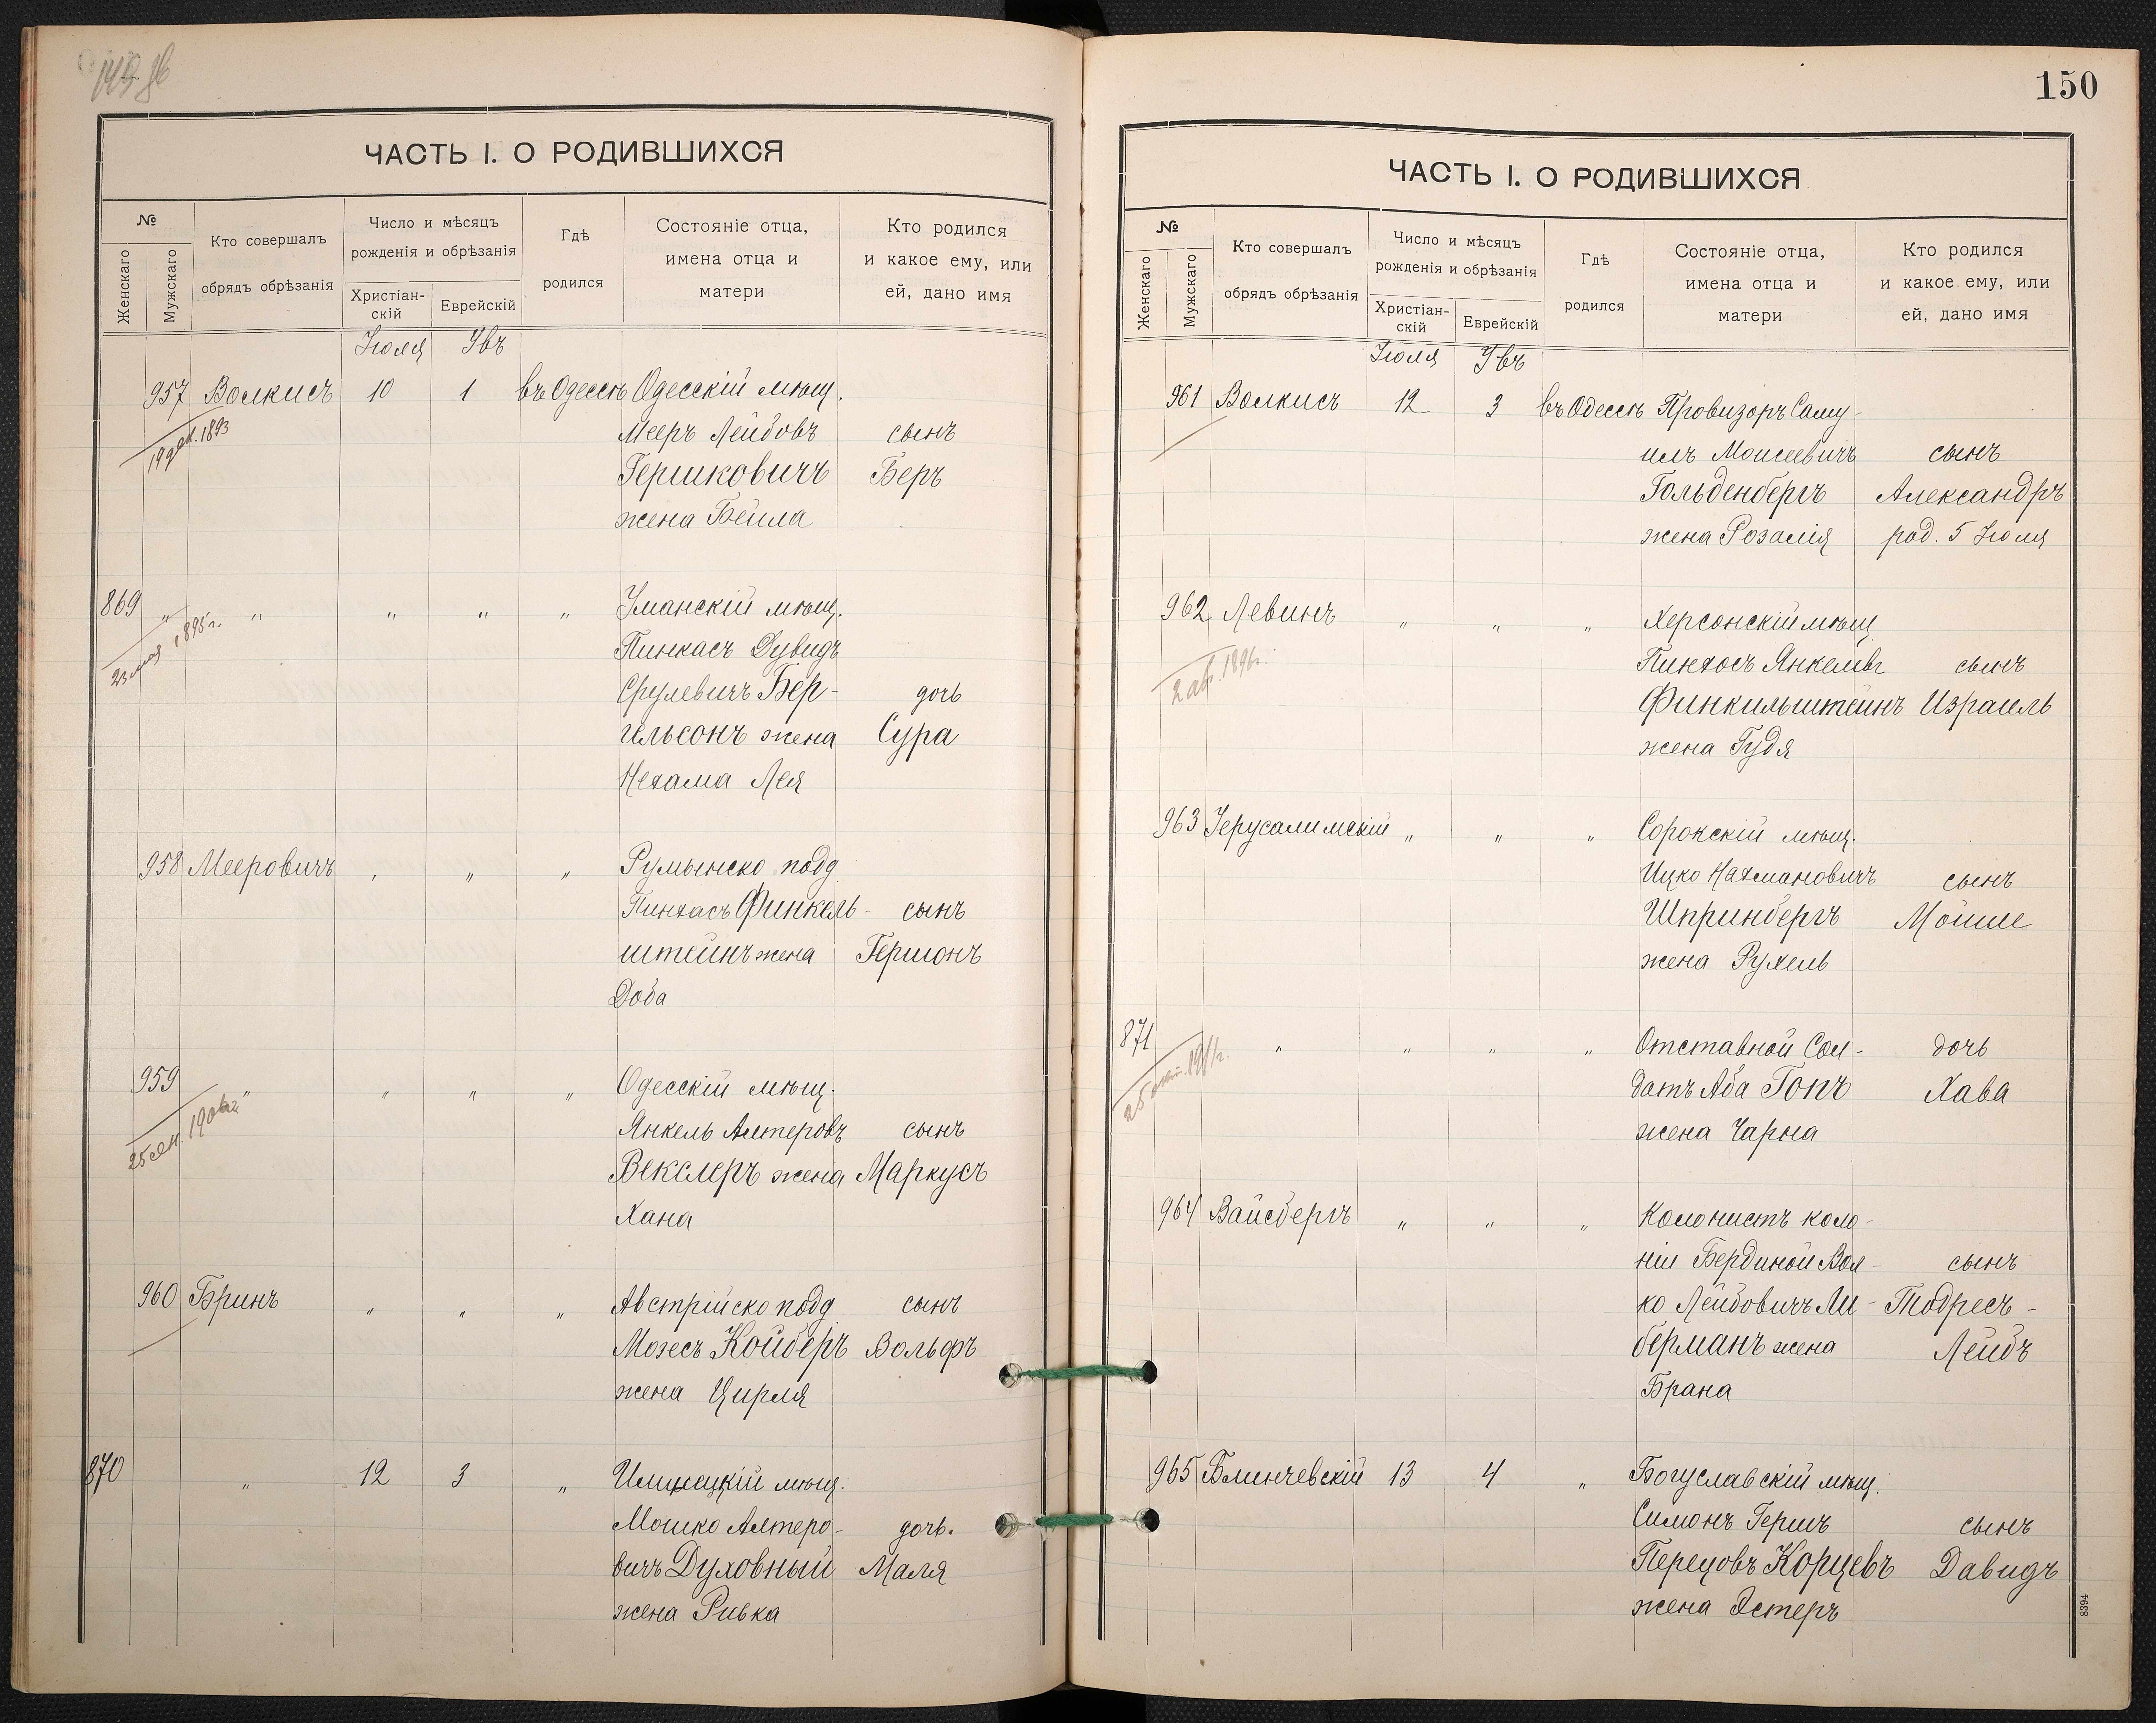 ЧАСТЬ I. О РОДИВШИХСЯ
№
Женскаго
Мужскаго
Кто совершалъ
обрядъ обрѣзанія
Число и мѣсяцъ
рожденія и обрѣзанія
Христіан-
скій
Еврейскій
Гдѣ
родился
Состояніе отца,
имена отца и
матери
Кто родился
и какое ему, или
ей, дано имя
Іюля Увъ
957 Волкисъ 10 1 въ Одессѣ Одесскій мѣщ.
Мееръ Лейбовъ сынъ
Гершковичъ Беръ
жена Бейла
869 „ „ „ „ „ Уманскій мѣщ.
23 мая 1895 г.
Пинкасъ Дувидъ
Срулевичъ Бер-
дочь
гельсонъ жена Сура
Нехама Лея
958 Мееровичъ „ „ „ Румынско подд
Пинхасъ Финкель- сынъ
штейнъ жена Гершонъ
Доба
959 „ „ „ „ Одесскій мѣщ.
25 сен.
Янкель Алтеровъ сынъ
Векслеръ жена Маркусъ
Хана
960 Бринъ „ „ „ Австрійско подд сынъ
Мозесъ Койберъ Вольфъ
жена Цирля
870 „ 12 3 „ мѣщ.
Мошко Алтеро- дочь.
вичъ Духовный Маля
жена Ривка
150
ЧАСТЬ I. О РОДИВШИХСЯ
№
Женскаго
Мужскаго
Кто совершалъ
обрядъ обрѣзанія
Число и мѣсяцъ
рожденія и обрѣзанія
Христіан-
скій
Еврейскій
Гдѣ
родился
Состояніе отца,
имена отца и
матери
Кто родился
и какое ему, или
ей, дано имя
Іюля Увъ
961 Волкисъ 12 3 въ Одессѣ Провизоръ Саму-
илъ Моисеевичъ сынъ
Гольденбергъ Александръ
жена Розалія род. 5 Іюля
962 Левинъ „ „ „ Херсонскій мѣщ
1896 г.
Пинхосъ Янкелевъ сынъ
Финкильштейнъ Израиль
жена Гудя
963 Іерусалимскій „ „ „ Сорокскій мѣщ.
Ицко Нахмановичъ сынъ
Шпринбергъ Мойше
жена Рухель
871 „ „ „ „ Отставной Сол- дочь
датъ Аба Гопъ Хава
жена Чарна
964 Вайсбергъ „ „ „ Колонистъ коло-
ніи Бердиной Вол- сынъ
ко Лейбовичъ Ли- Тодресъ-
берманъ жена Лейбъ
Брана
965 Блинчевскій 13 4 „ Богуславскій мѣщ.
Симонъ Гершъ сынъ
Перецовъ Корцевъ Давидъ
жена Эстеръ
8394